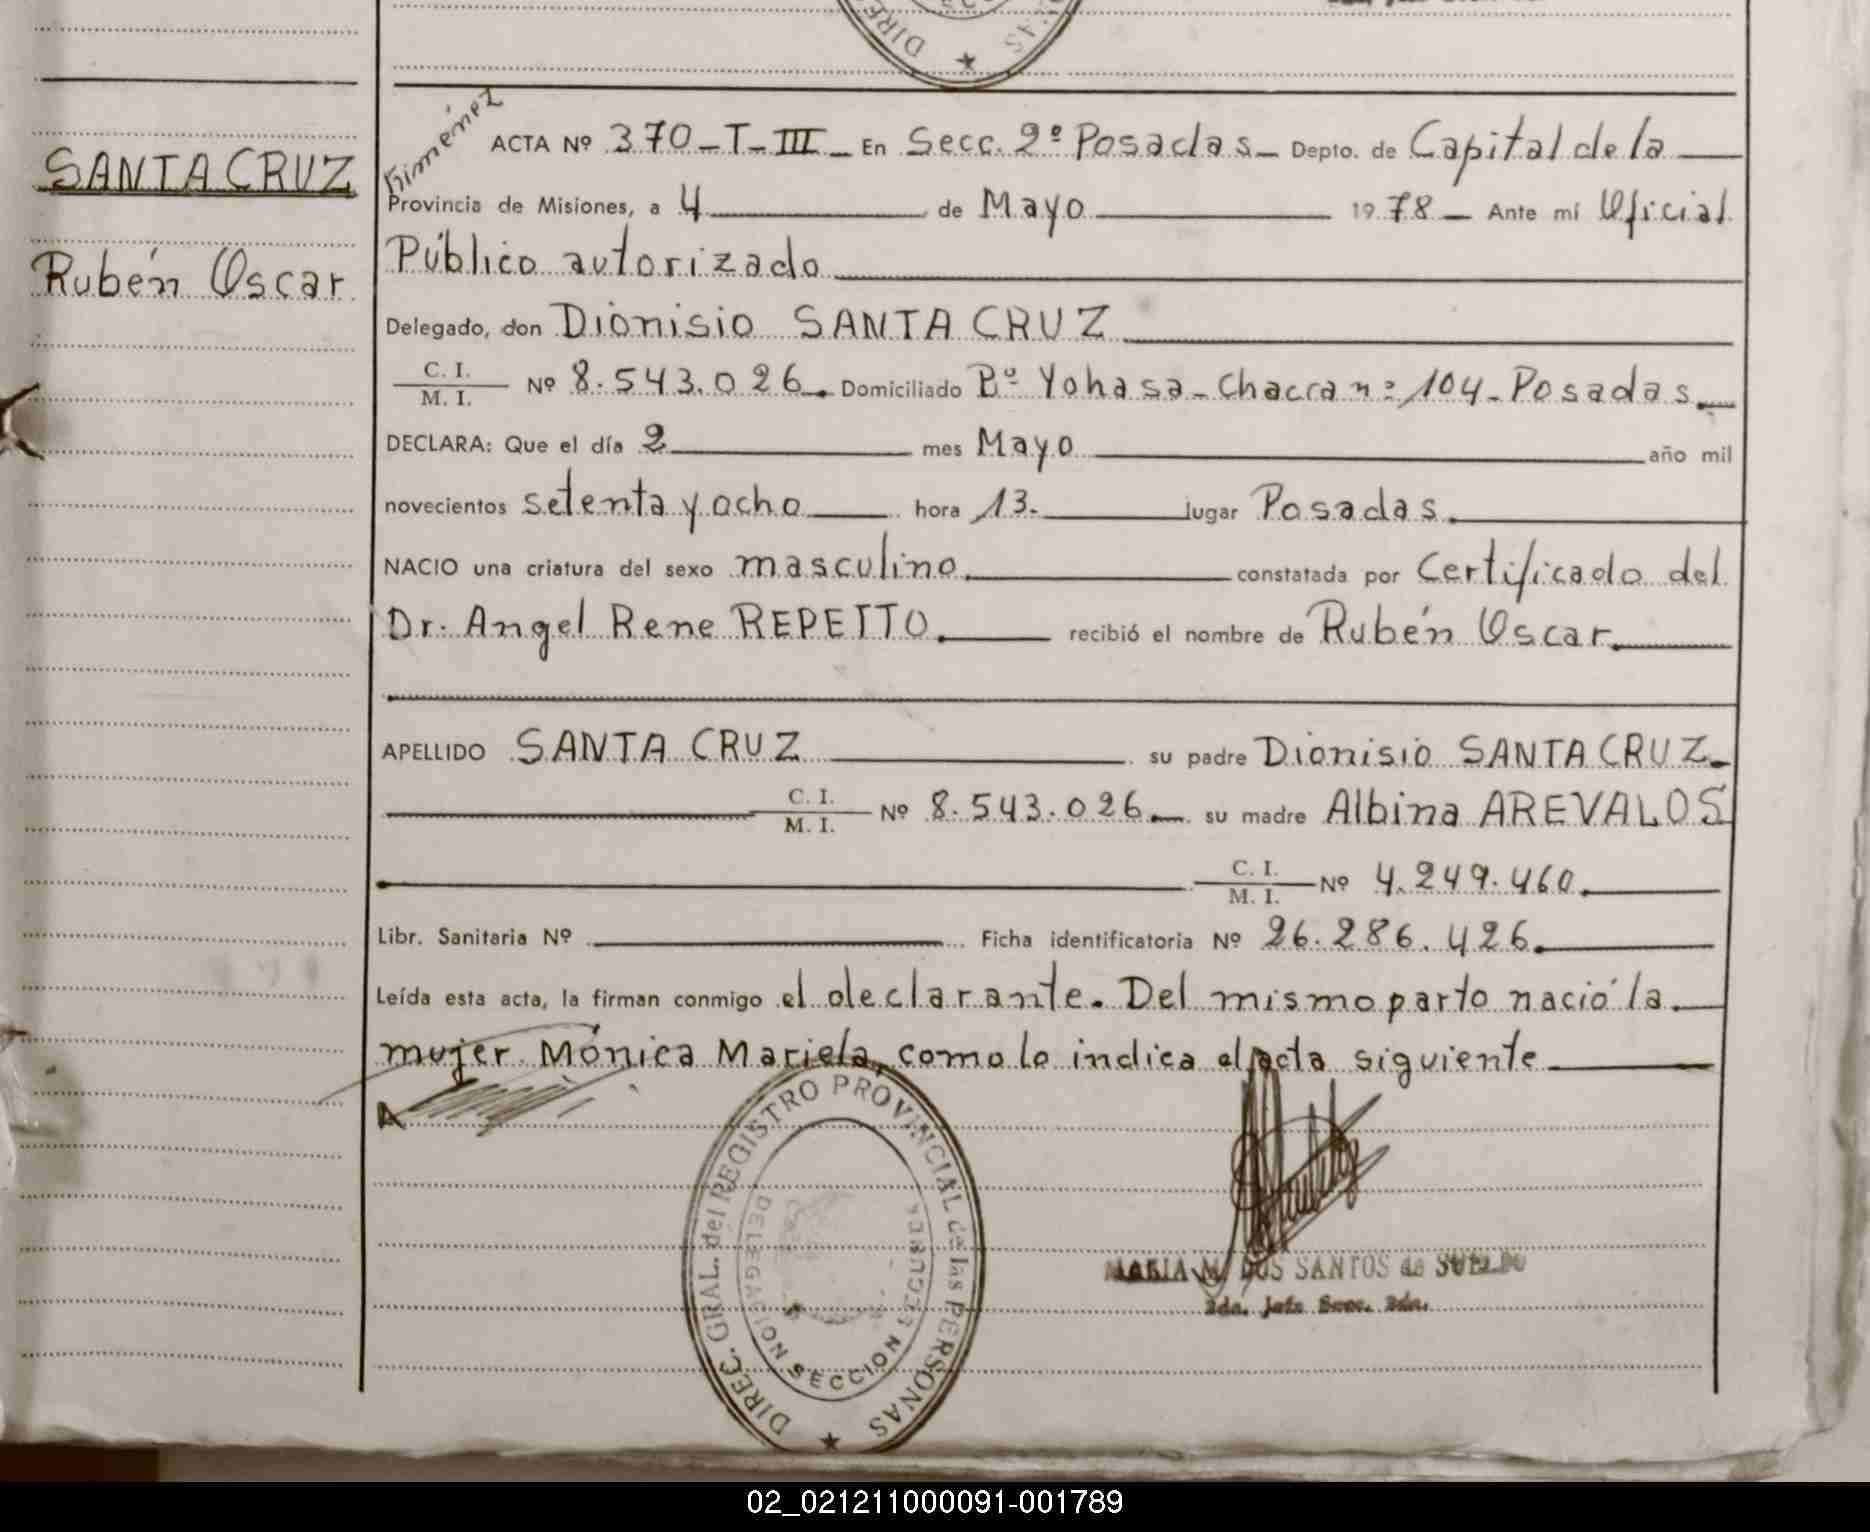 DIREC
AS
SANTA CRUZ
Rubén Oscar
Gimenez
ACTA Nº 370-T-III- En Secc. 2º Posadas- Depto. de Capital de la
Provincia de Misiones, a 4 de Mayo 1978- Ante mí Oficial
Público autorizado
Delegado, don Dionisio SANTA CRUZ
C. I.
M. I. Nº 8.543.026. Domiciliado Bº Yohasa-Chacra nº 104-Posadas.
DECLARA: Que el día 2 mes Mayo año mil
novecientos setenta y ocho hora 13. lugar Posadas.
NACIO una criatura del sexo masculino. constatada por Certificado del
Dr. Angel Rene REPETTO. recibió el nombre de Rubén Oscar.
APELLIDO SANTA CRUZ su padre Dionisio SANTA CRUZ.
C. I.
M. I. Nº 8.543.026. su madre Albina AREVALOS
C. I.
M. I. Nº 4.249.460.
Libr. Sanitaria Nº Ficha identificatoria Nº 26.286.426.
Leída esta acta, la firman conmigo el declarante. Del mismo parto nació la
mujer Mónica Mariela, como lo indica el acta siguiente
DIREC. GRAL. del REGISTRO PROVINCIAL de las PERSONAS
DELEGACION SECCION SEGUNDA
MARIA M. DOS SANTOS de SUELDO
2da. Jefe Secc. 2da.
02_021211000091-001789